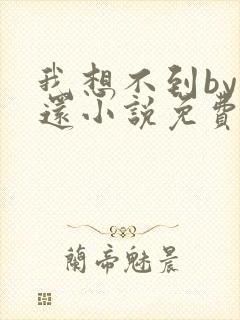 我想不到by
還小說免費
蘭帝魅晨